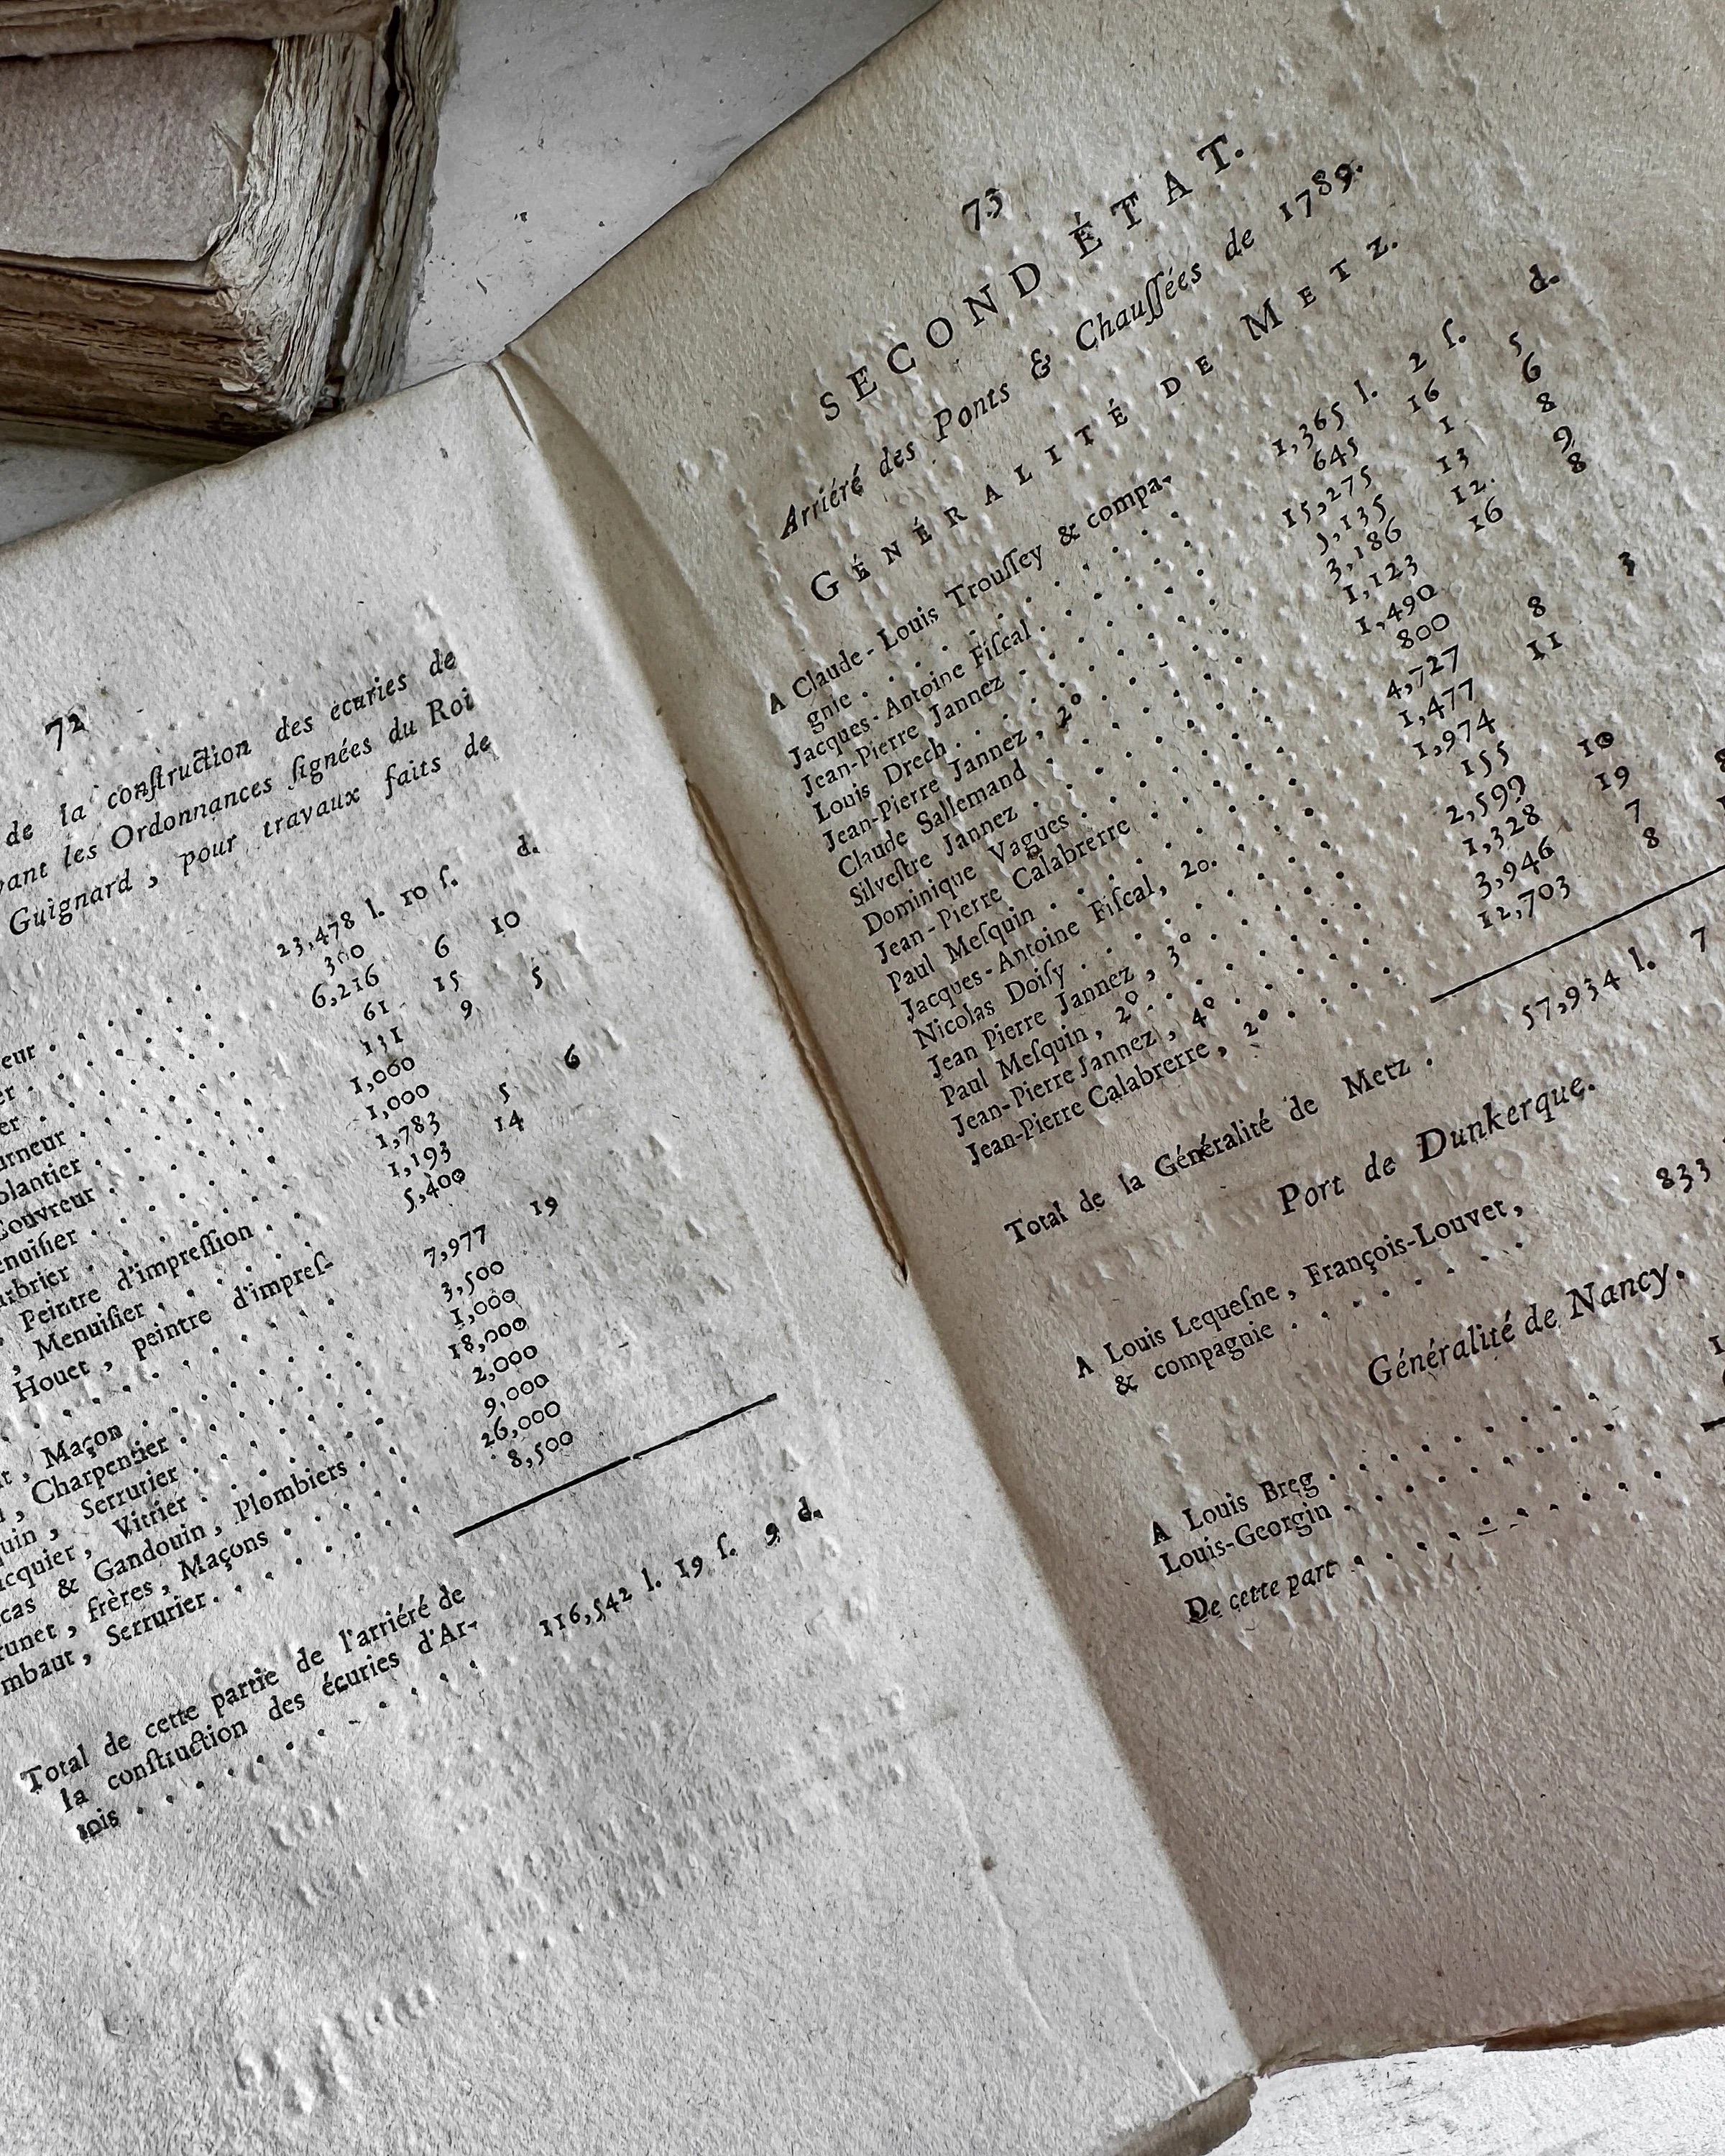 72
de la conſtruction des écuries de
les Ordonnances ſignées du Roi
Guignard, pour travaux faits de
d.
23,478 l. 10 ſ.
300
6,216 6 10
61 15
131 9 5
1,000
1,000
1,783 5 6
1,193 14
5,400
Peintre d'impreſſion
, Menuiſier
Houet, peintre d'impreſ-
7,977 19
, Maçon 3,500
, Charpentier 1,000
, Serrurier 18,000
, Vitrier 2,000
& Gandouin, Plombiers 9,000
, frères, Maçons 26,000
, Serrurier 8,500
Total de cette partie de l'arriéré de
la conſtruction des écuries d'Ar-
tois 116,542 l. 19 ſ. 9 d.
73
SECOND ÉTAT.
Arriéré des Ponts & Chauſſées de 1789.
GÉNÉRALITÉ DE METZ.
d.
A Claude-Louis Trouſſey & compa-
gnie 1,365 l. 2 ſ. 5
Jacques-Antoine Fiſcal 645 16 6
Jean-Pierre Jannez 15,275 1 8
Louis Drech 5,135 13 9
Jean-Pierre Jannez, 2° 3,186 12 8
Claude Sallemand 1,123 16
Silveſtre Jannez 1,490
Dominique Vagues 800
Jean-Pierre Calabrerre 4,727 8 3
Paul Meſquin 1,477 11
Jacques-Antoine Fiſcal, 2o. 1,974
Nicolas Doiſy 155
Jean Pierre Jannez, 3° 2,599 10
Paul Meſquin, 2° 1,328 19
Jean-Pierre Jannez, 4° 3,946 7
Jean-Pierre Calabrerre, 2° 12,703 8
Total de la Généralité de Metz. 57,934 l. 7
Port de Dunkerque.
A Louis Lequeſne, François-Louvet,
& compagnie 833
Généralité de Nancy.
A Louis Breg
Louis-Georgin
De cette part